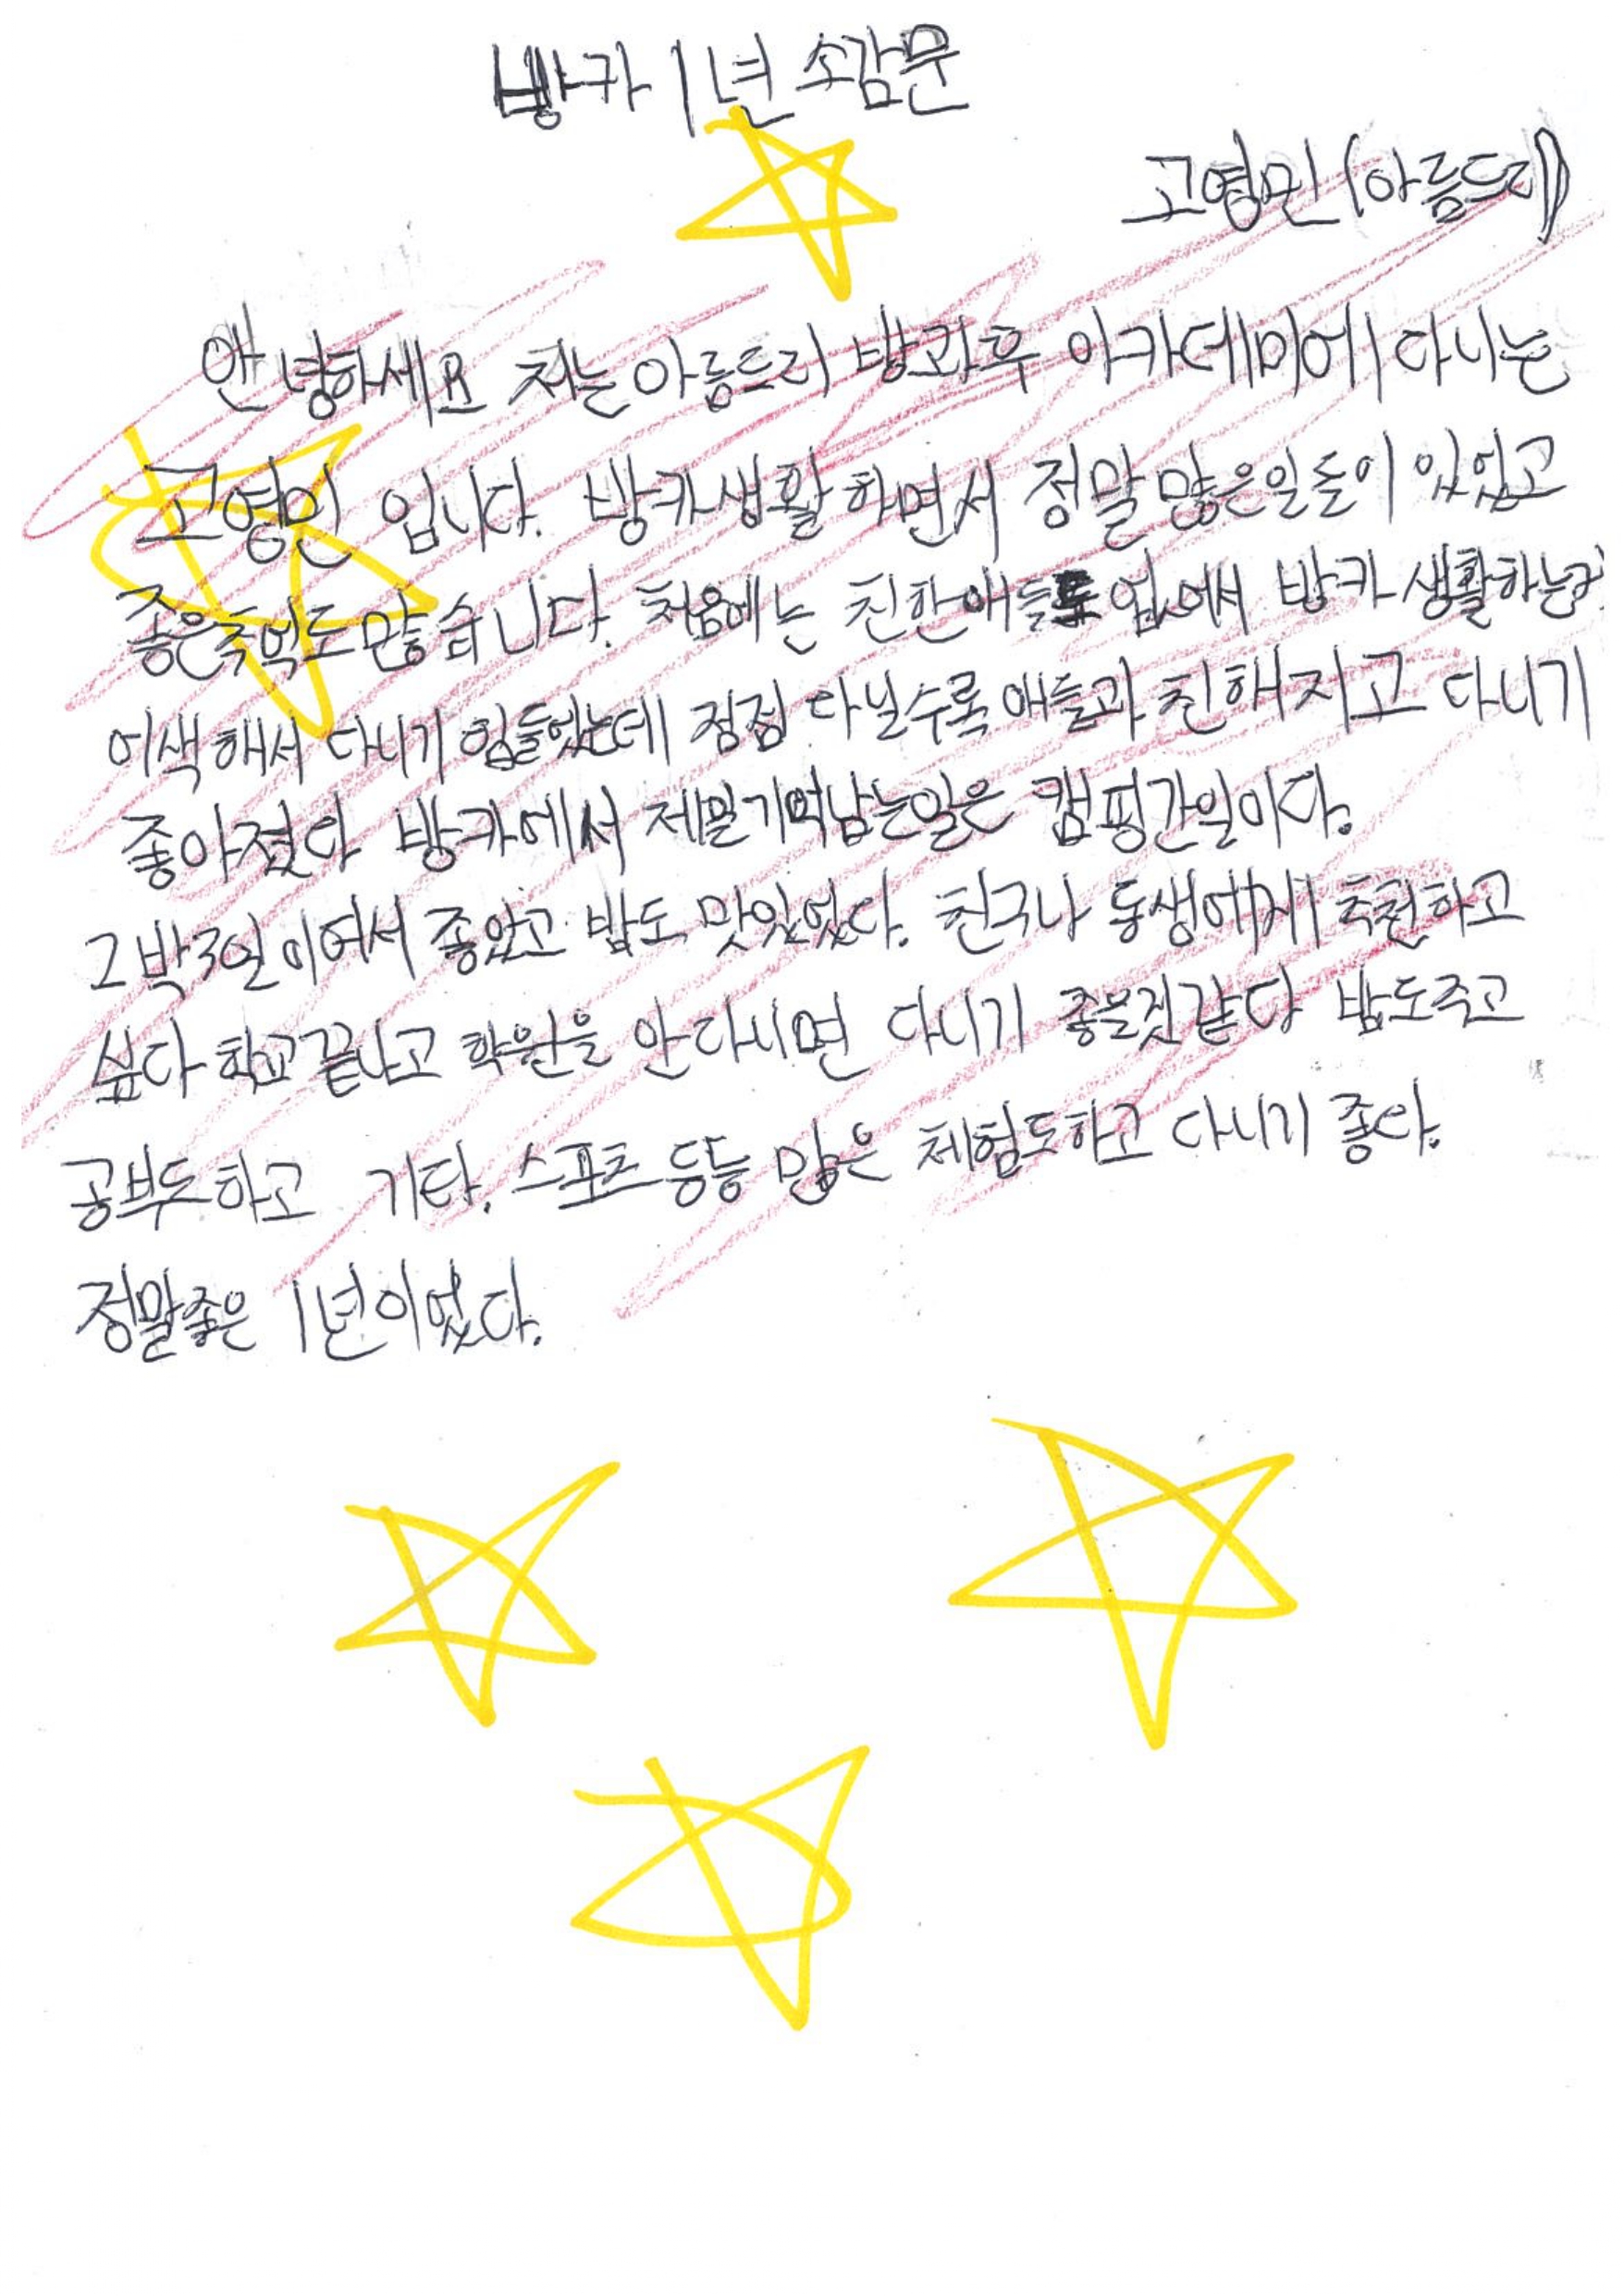 방카 1년 소감문
고영민(아름드리)
안녕하세요 저는 아름드리 방과후 아카데미에 다니는
고영민 입니다. 방카생활 하면서 정말 많은일들이 있었고
좋은추억도 많습니다. 처음에는 친한애들도 없어서 방카 생활하는게
어색해서 다니기 힘들었는데 점점 다닐수록 애들과 친해지고 다니기
좋아졌다 방카에서 제일기억남는일은 캠핑간일이다.
2박3일이여서 좋았고 밥도 맛있었다. 친구나 동생에게 추천하고
싶다 학교끝나고 학원을 안다니면 다니기 좋을것같다 밥도주고
공부도하고 기타, 스포츠 등등 많은 체험도하고 다니기 좋다.
정말좋은 1년이었다.